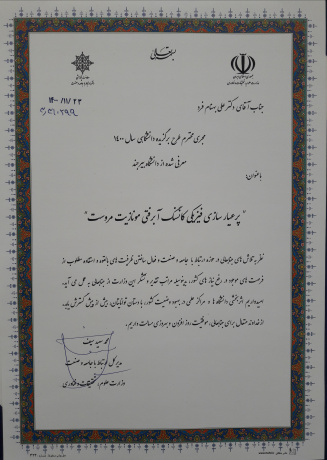 بسمه تعالی
۱۴۰۰/۱۱/۲۳
جناب آقای دکتر علی بهنام فرد
مجری محترم طرح برگزیده دانشگاهی سال ۱۴۰۰
معرفی شده از دانشگاه بیرجند
با عنوان:
" پرعیارسازی فیزیکی کانسنگ آبرفتی مونازیت مروست "
نظر به تلاش های جنابعالی در حوزه ارتباط با جامعه و صنعت و فعال ساختن ظرفیت های بالقوه و استفاده مطلوب از
فرصت های موجود در رفع نیاز های کشور، بدینوسیله مراتب تقدیر و تشکر این وزارت از جنابعالی به عمل می آید.
امیدواریم اثربخشی دانشگاه ها و مراکز علمی در بهبود وضعیت کشور، با دستان توانایتان، بیش از پیش گسترش یابد.
از خداوند متعال برای جنابعالی، موفقیت روز افزون و بهروزی مسألت داریم.
محمد سعید سیف
مدیر کل ارتباط با جامعه و صنعت
وزارت علوم، تحقیقات و فناوری